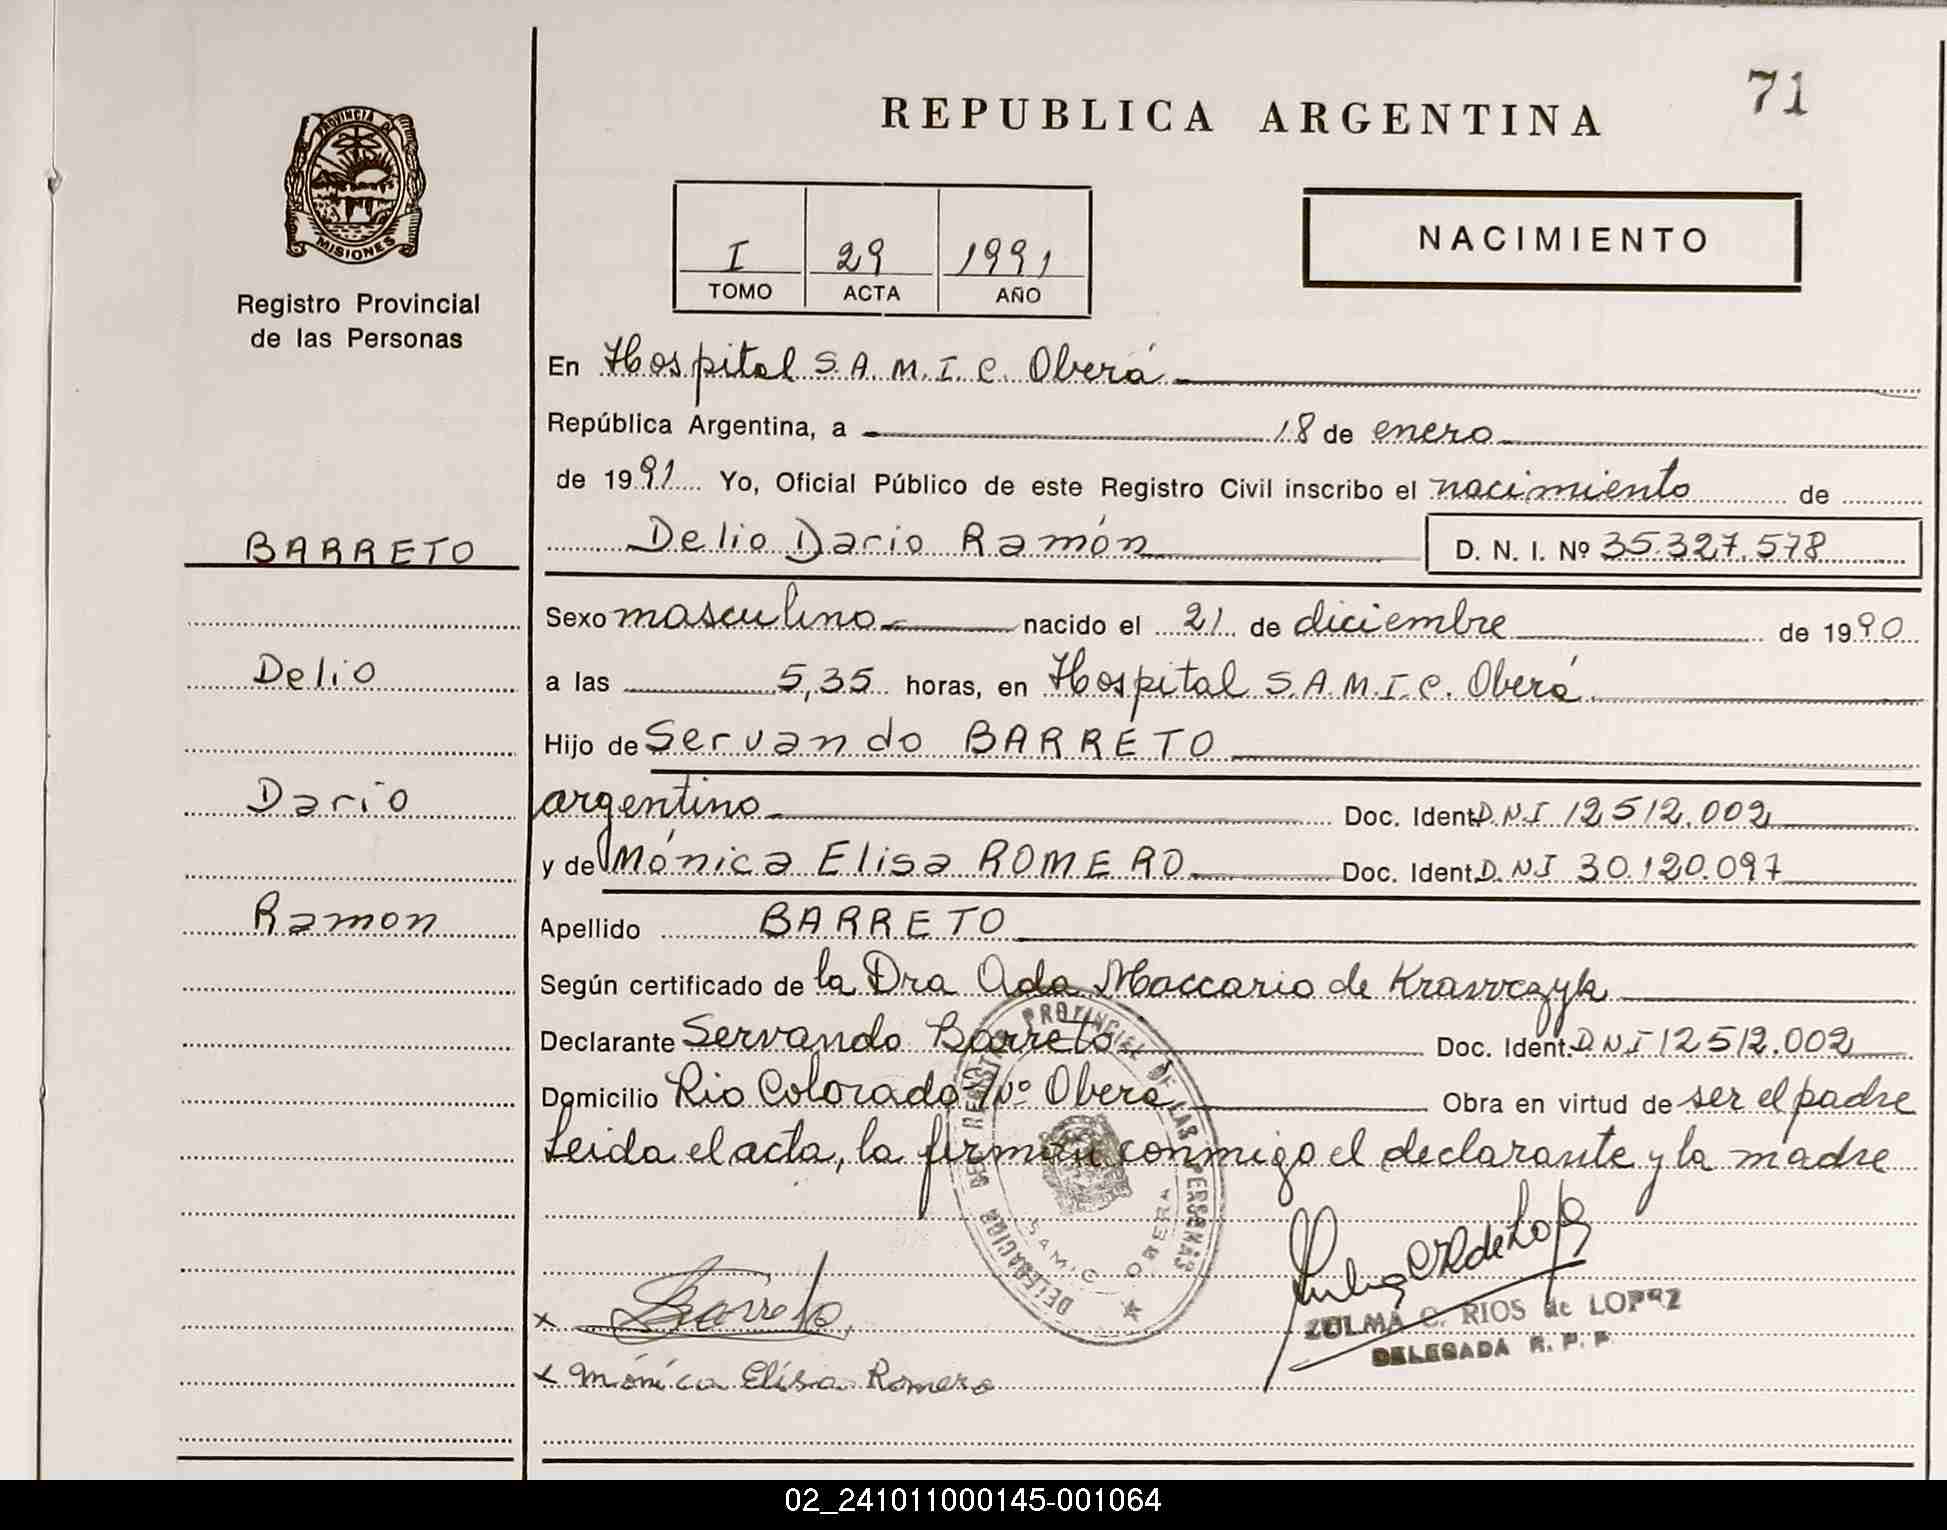 71
REPUBLICA ARGENTINA
PROVINCIA DE
MISIONES
Registro Provincial
de las Personas
I 29 1991
TOMO ACTA AÑO
NACIMIENTO
En Hospital S.A.M.I.C. Oberá
República Argentina, a 18 de enero
de 1991 Yo, Oficial Público de este Registro Civil inscribo el nacimiento de
BARRETO
Delio Dario Ramón D. N. I. Nº 35.327.578
Sexo masculino nacido el 21 de diciembre de 1990
Delio
a las 5,35 horas, en Hospital S.A.M.I.C. Oberá
Hijo de Servando BARRETO
Dario
argentino Doc. Ident. DNI 12512.002
y de Mónica Elisa ROMERO Doc. Ident. DNI 30.120.097
Ramon
Apellido BARRETO
Según certificado de la Dra Ada Maccario de Krawczyk
Declarante Servando Barreto Doc. Ident. DNI 12512.002
Domicilio Rio Colorado Nº Obera Obra en virtud de ser el padre
Leida el acta, la firman conmigo el declarante y la madre
DELEGACION DEL REGISTRO PROVINCIAL DE LAS PERSONAS
SAMIC OBERA
x Barreto
ZULMA C. RIOS de LOPEZ
DELEGADA R. P. P.
x Mónica Elisa Romero
02_241011000145-001064